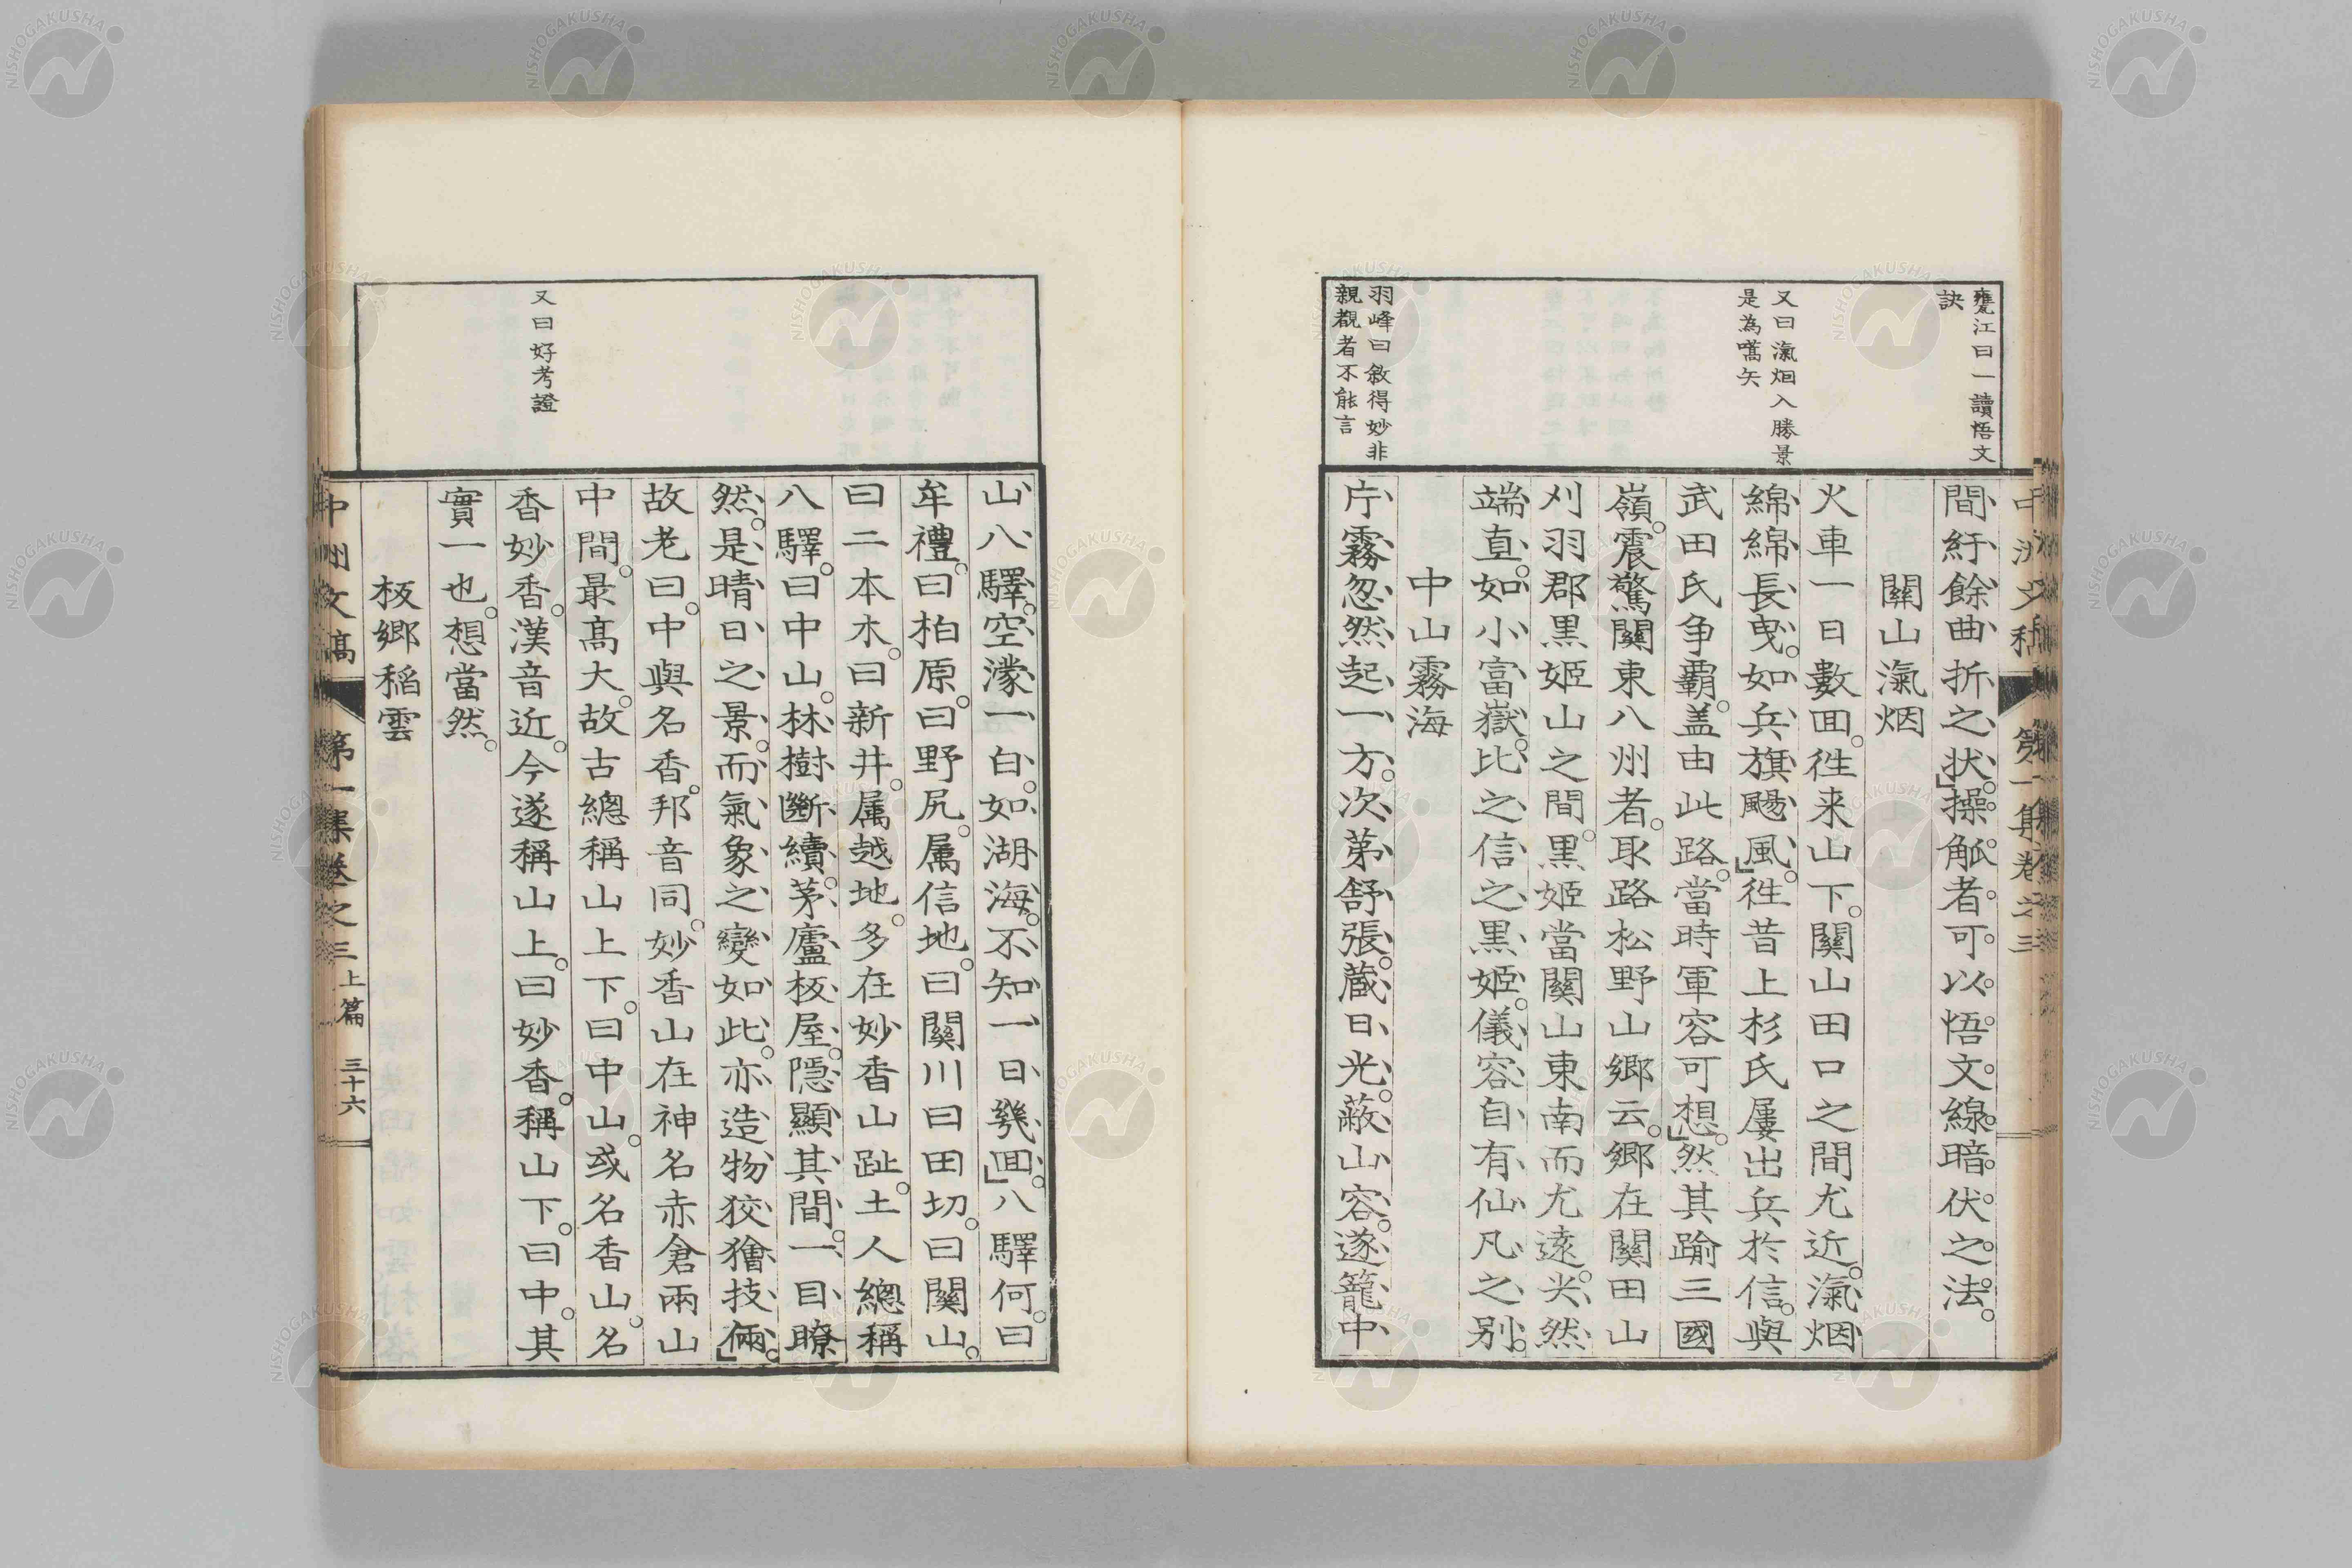 甕江曰一讀悟文
訣
又曰滊烟入勝景
是為嚆矢
羽峰曰敘得妙非
親覩者不能言
中洲文稿 第一集卷之三
間紆餘曲折之状操觚者可以悟文線暗伏之法
關山滊烟
火車一日數回徃来山下關山田口之間尤近滊烟
綿綿長曳如兵旗颺風徃昔上杉氏屢出兵於信與
武田氏争覇盖由此路當時軍容可想然其踰三國
嶺震驚關東八州者取路松野山郷云郷在關田山
刈羽郡黒姬山之間黒姬當關山東南而尤遠尖然
端直如小富嶽比之信之黒姬儀容自有仙凡之别
中山霧海
庁霧忽然起一方次第舒張蔵日光蔽山容遂籠中
又曰好考證
山八驛空濛一白如湖海不知一日幾回八驛何曰
牟禮曰柏原曰野尻属信地曰關川曰田切曰關山
曰二本木曰新井属越地多在妙香山趾土人總稱
八驛曰中山林樹斷續茅廬板屋隠顯其間一目瞭
然是晴日之景而氣象之變如此亦造物狡獪技倆
故老曰中與名香邦音同妙香山在神名赤倉兩山
中間最髙大故古總稱山上下曰中山或名香山名
香妙香漢音近今遂稱山上曰妙香稱山下曰中其
實一也想當然
板郷稲雲
中洲文稿 第一集卷之三 上篇 三十六
NISHOGAKUSHA